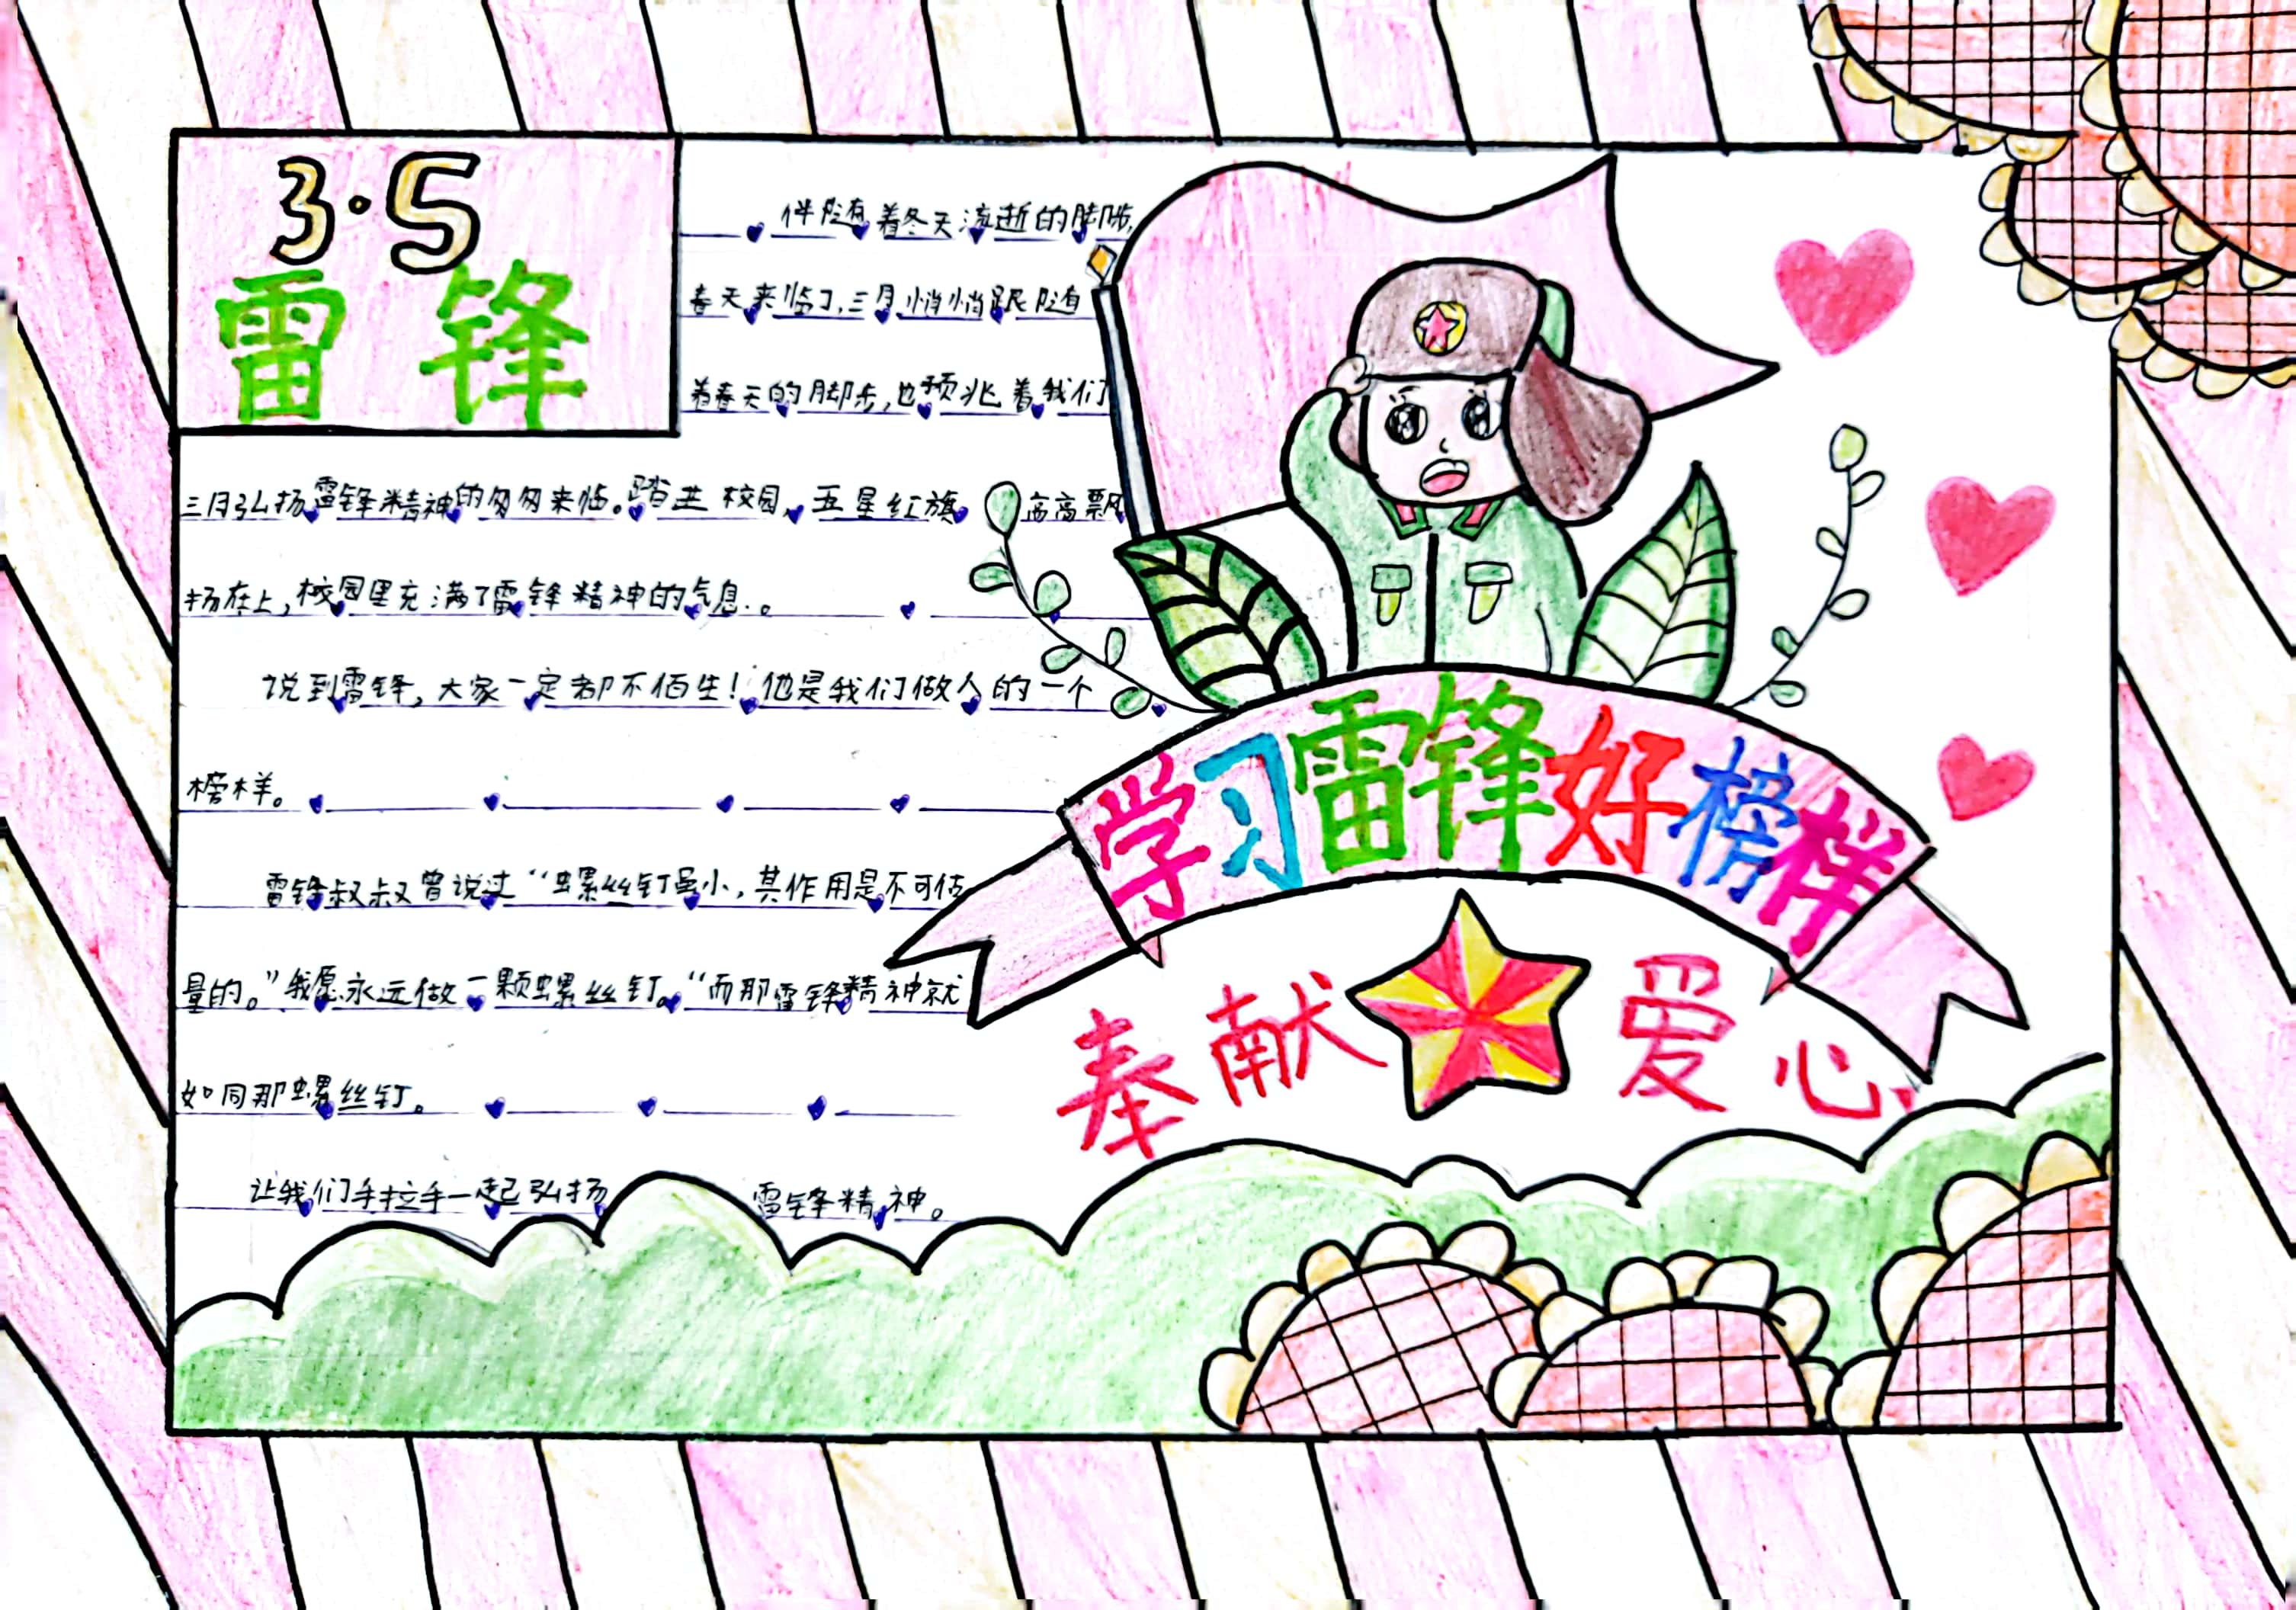 3·5
雷锋
伴随着冬天流逝的脚步,
春天来临了,三月悄悄跟随
着春天的脚步,也预兆着我们
三月弘扬雷锋精神的匆匆来临。踏进校园,五星红旗高高飘
扬在上,校园里充满了雷锋精神的气息.。
说到雷锋,大家一定都不佰生!他是我们做人的一个
榜样。
雷锋叔叔曾说过“螺丝钉虽小,其作用是不可估
量的。”我愿永远做一颗螺丝钉。“而那雷锋精神就
如同那螺丝钉。
让我们手拉手一起弘扬雷锋精神。
学习雷锋好榜样
奉献爱心